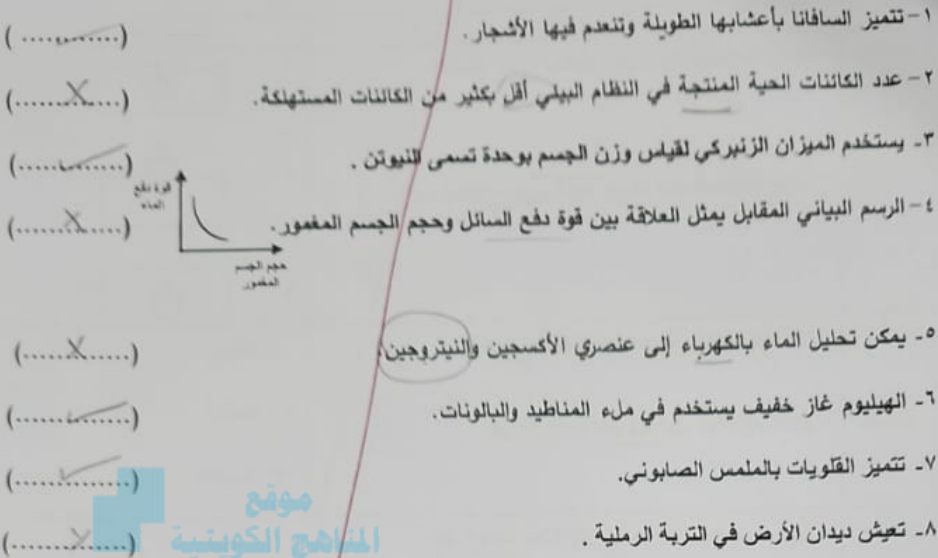 ١- تتميز السافانا بأعشابها الطويلة وتنعدم فيها الأشجار. (......✓......)
٢- عدد الكائنات الحية المنتجة في النظام البيئي أقل بكثير من الكائنات المستهلكة. (......X......)
٣- يستخدم الميزان الزنبركي لقياس وزن الجسم بوحدة تسمى النيوتن. (......✓......)
٤- الرسم البياني المقابل يمثل العلاقة بين قوة دفع السائل وحجم الجسم المغمور. (......X......)
قوة دفع
الماء
حجم الجسم
المغمور
٥- يمكن تحليل الماء بالكهرباء إلى عنصري الأكسجين والنيتروجين. (......X......)
٦- الهيليوم غاز خفيف يستخدم في ملء المناطيد والبالونات. (......✓......)
٧- تتميز القلويات بالملمس الصابوني. (......✓......)
٨- تعيش ديدان الأرض في التربة الرملية. (......X......)
موقع
المناهج الكويتية